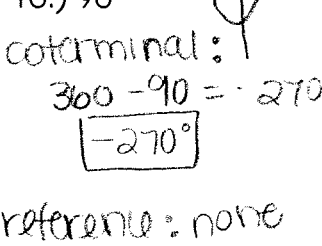 coterminal:
360 - 90 = · 270
-270°
reference: none